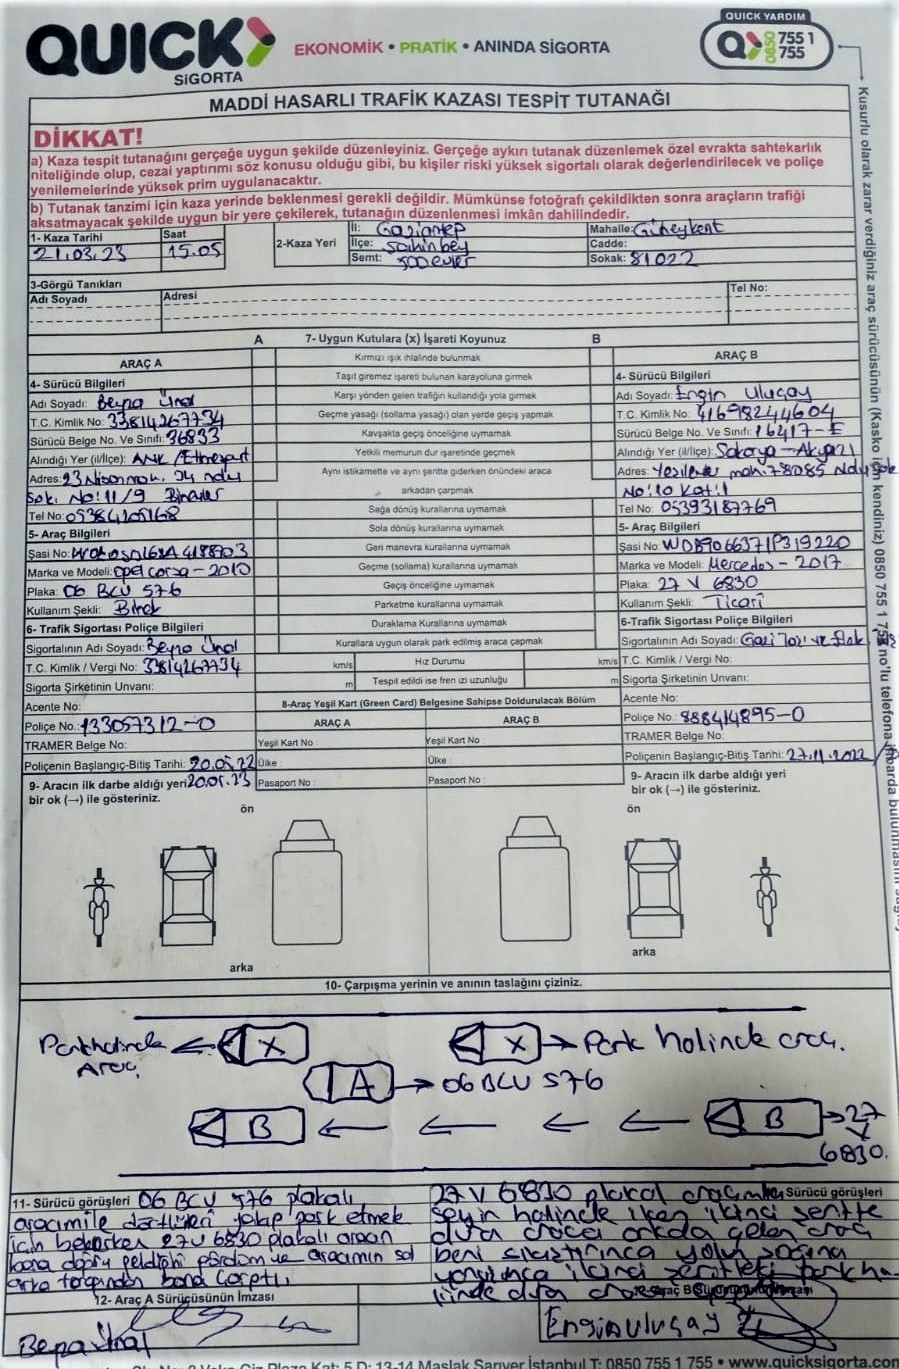 QUICK
SİGORTA
EKONOMİK • PRATİK • ANINDA SİGORTA
QUICK YARDIM
0850 755 1 755
MADDİ HASARLI TRAFİK KAZASI TESPİT TUTANAĞI
DİKKAT!
a) Kaza tespit tutanağını gerçeğe uygun şekilde düzenleyiniz. Gerçeğe aykırı tutanak düzenlemek özel evrakta sahtekarlık
niteliğinde olup, cezai yaptırımı söz konusu olduğu gibi, bu kişiler riski yüksek sigortalı olarak değerlendirilecek ve poliçe
yenilemelerinde yüksek prim uygulanacaktır.
b) Tutanak tanzimi için kaza yerinde beklenmesi gerekli değildir. Mümkünse fotoğrafı çekildikten sonra araçların trafiği
aksatmayacak şekilde uygun bir yere çekilerek, tutanağın düzenlenmesi imkân dahilindedir.
1- Kaza Tarihi
21.03.23
Saat
15.05
2-Kaza Yeri
İl: Gaziantep
İlçe: Şahinbey
Semt: 500 evler
Mahalle: Güneykent
Cadde:
Sokak: 81022
3-Görgü Tanıkları
Adı Soyadı
Adresi
Tel No:
A
7- Uygun Kutulara (x) İşareti Koyunuz
B
ARAÇ A
4- Sürücü Bilgileri
Adı Soyadı: Beyza Ünal
T.C. Kimlik No: 33814267734
Sürücü Belge No. Ve Sınıfı: 36833
Alındığı Yer (il/ilçe): ANK /
Adres: 23 Nisan mah.
Sok. No: 11/9
Tel No:
5- Araç Bilgileri
Şasi No:
Marka ve Modeli: Opel corsa - 2010
Plaka: 06 BCU 576
Kullanım Şekli: Binek
6- Trafik Sigortası Poliçe Bilgileri
Sigortalının Adı Soyadı: Beyza Ünal
T.C. Kimlik / Vergi No: 33814267734
Sigorta Şirketinin Unvanı:
Acente No:
Poliçe No.: 133057312-0
TRAMER Belge No:
Poliçenin Başlangıç-Bitiş Tarihi: 20.05.22
20.05.23
9- Aracın ilk darbe aldığı yeri
bir ok (→) ile gösteriniz.
Kırmızı ışık ihlalinde bulunmak
Taşıt giremez işareti bulunan karayoluna girmek
Karşı yönden gelen trafiğin kullandığı yola girmek
Geçme yasağı (sollama yasağı) olan yerde geçiş yapmak
Kavşakta geçiş önceliğine uymamak
Yetkili memurun dur işaretinde geçmek
Aynı istikamette ve aynı şeritte giderken önündeki araca
arkadan çarpmak
Sağa dönüş kurallarına uymamak
Sola dönüş kurallarına uymamak
Geri manevra kurallarına uymamak
Geçme (sollama) kurallarına uymamak
Geçiş önceliğine uymamak
Parketme kurallarına uymamak
Duraklama Kurallarına uymamak
Kurallara uygun olarak park edilmiş araca çapmak
km/s Hız Durumu km/s
m Tespit edildi ise fren izi uzunluğu m
8-Araç Yeşil Kart (Green Card) Belgesine Sahipse Doldurulacak Bölüm
ARAÇ A
ARAÇ B
Yeşil Kart No :
Yeşil Kart No :
Ülke :
Ülke :
Pasaport No :
Pasaport No :
ARAÇ B
4- Sürücü Bilgileri
Adı Soyadı: Engin Uluçay
T.C. Kimlik No: 41698244604
Sürücü Belge No. Ve Sınıfı: 16417-E
Alındığı Yer (il/ilçe): Sakarya - Akyazı
Adres: Yeşilevler mah 78085 Ndu sok
No:10 Kat:1
Tel No: 05393187769
5- Araç Bilgileri
Şasi No: WDB9066371P319220
Marka ve Modeli: Mercedes - 2017
Plaka: 27 V 6830
Kullanım Şekli: Ticari
6-Trafik Sigortası Poliçe Bilgileri
Sigortalının Adı Soyadı: Gazi
T.C. Kimlik / Vergi No:
Sigorta Şirketinin Unvanı:
Acente No:
Poliçe No.: 888414895-0
TRAMER Belge No:
Poliçenin Başlangıç-Bitiş Tarihi: 27.11.2022
9- Aracın ilk darbe aldığı yeri
bir ok (→) ile gösteriniz.
ön
ön
arka
arka
10- Çarpışma yerinin ve anının taslağını çiziniz.
Park halinde
Araç
X
X
Park halinde araç.
A
06 BCU 576
B
B
27
V
6830.
11- Sürücü görüşleri
06 BCU 576 plakalı
aracım ile dörtlüleri yakıp park etmek
için beklerken 27 V 6830 plakalı aracın
bana doğru geldiğini gördüm ve aracımın sol
arka tarafından bana çarptı.
Sürücü görüşleri
27 V 6830 plakalı aracımla
seyir halinde iken ikinci şeritte
duran araca arkada gelen araç
beni sıkıştırınca yolun sağına
yanaşınca ikinci şeritteki park ha
linde duran
12- Araç A Sürücüsünün İmzası
Beyza Ünal
Engin Uluçay
Kusurlu olarak zarar verdiğiniz araç sürücüsünün (Kasko için kendiniz) 0850 755 1 755 no'lu telefona ihbarda bulunması
Plaza Kat: 5 D: 13-14 Maslak Sarıyer İstanbul T: 0850 755 1 755 • www.quicksigorta.com